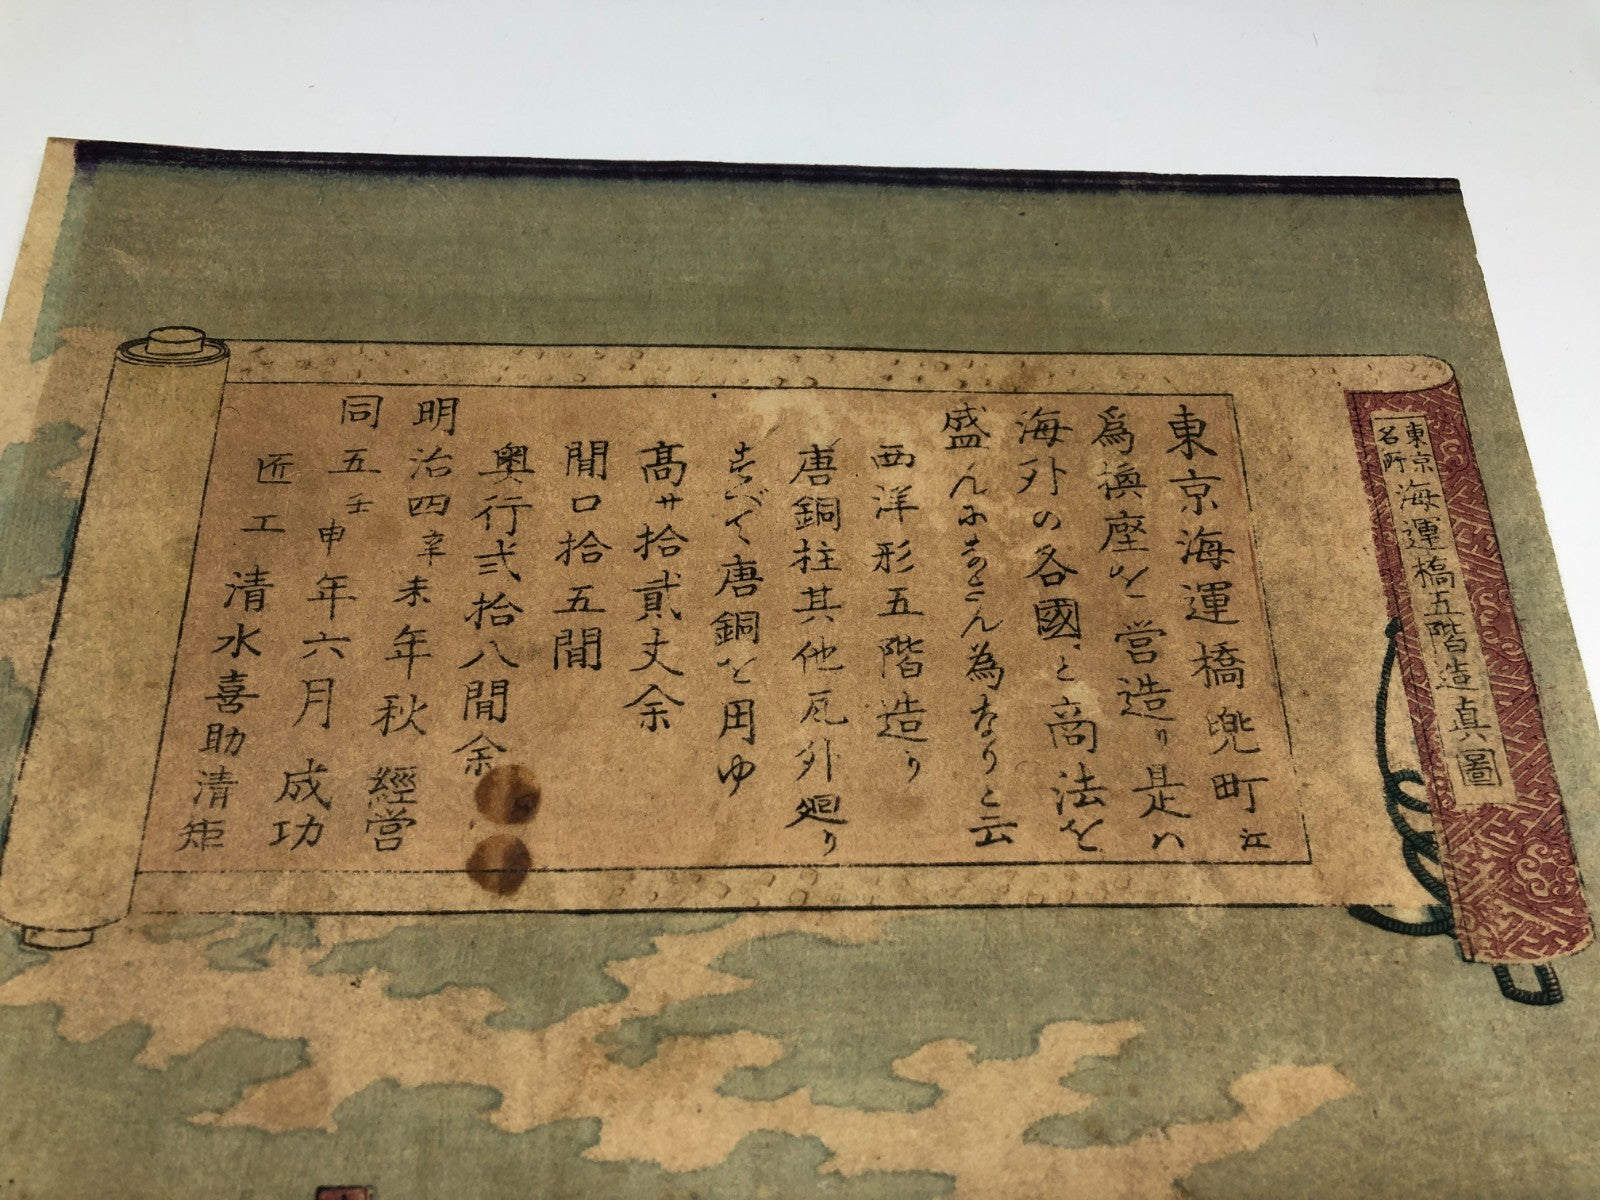 東京名所
海運橋五階造真圖
東京海運橋兜町江
為換座を営造り是ハ
海外の各國と商法を
盛んにせん為なりと云
西洋形五階造り
唐銅柱其他瓦外廻り
すべて唐銅を用ゆ
髙サ拾貳丈余
間口拾五間
奥行弍拾八間余
明治四辛未年秋 經営
同五壬申年六月 成功
匠工 清水喜助清矩